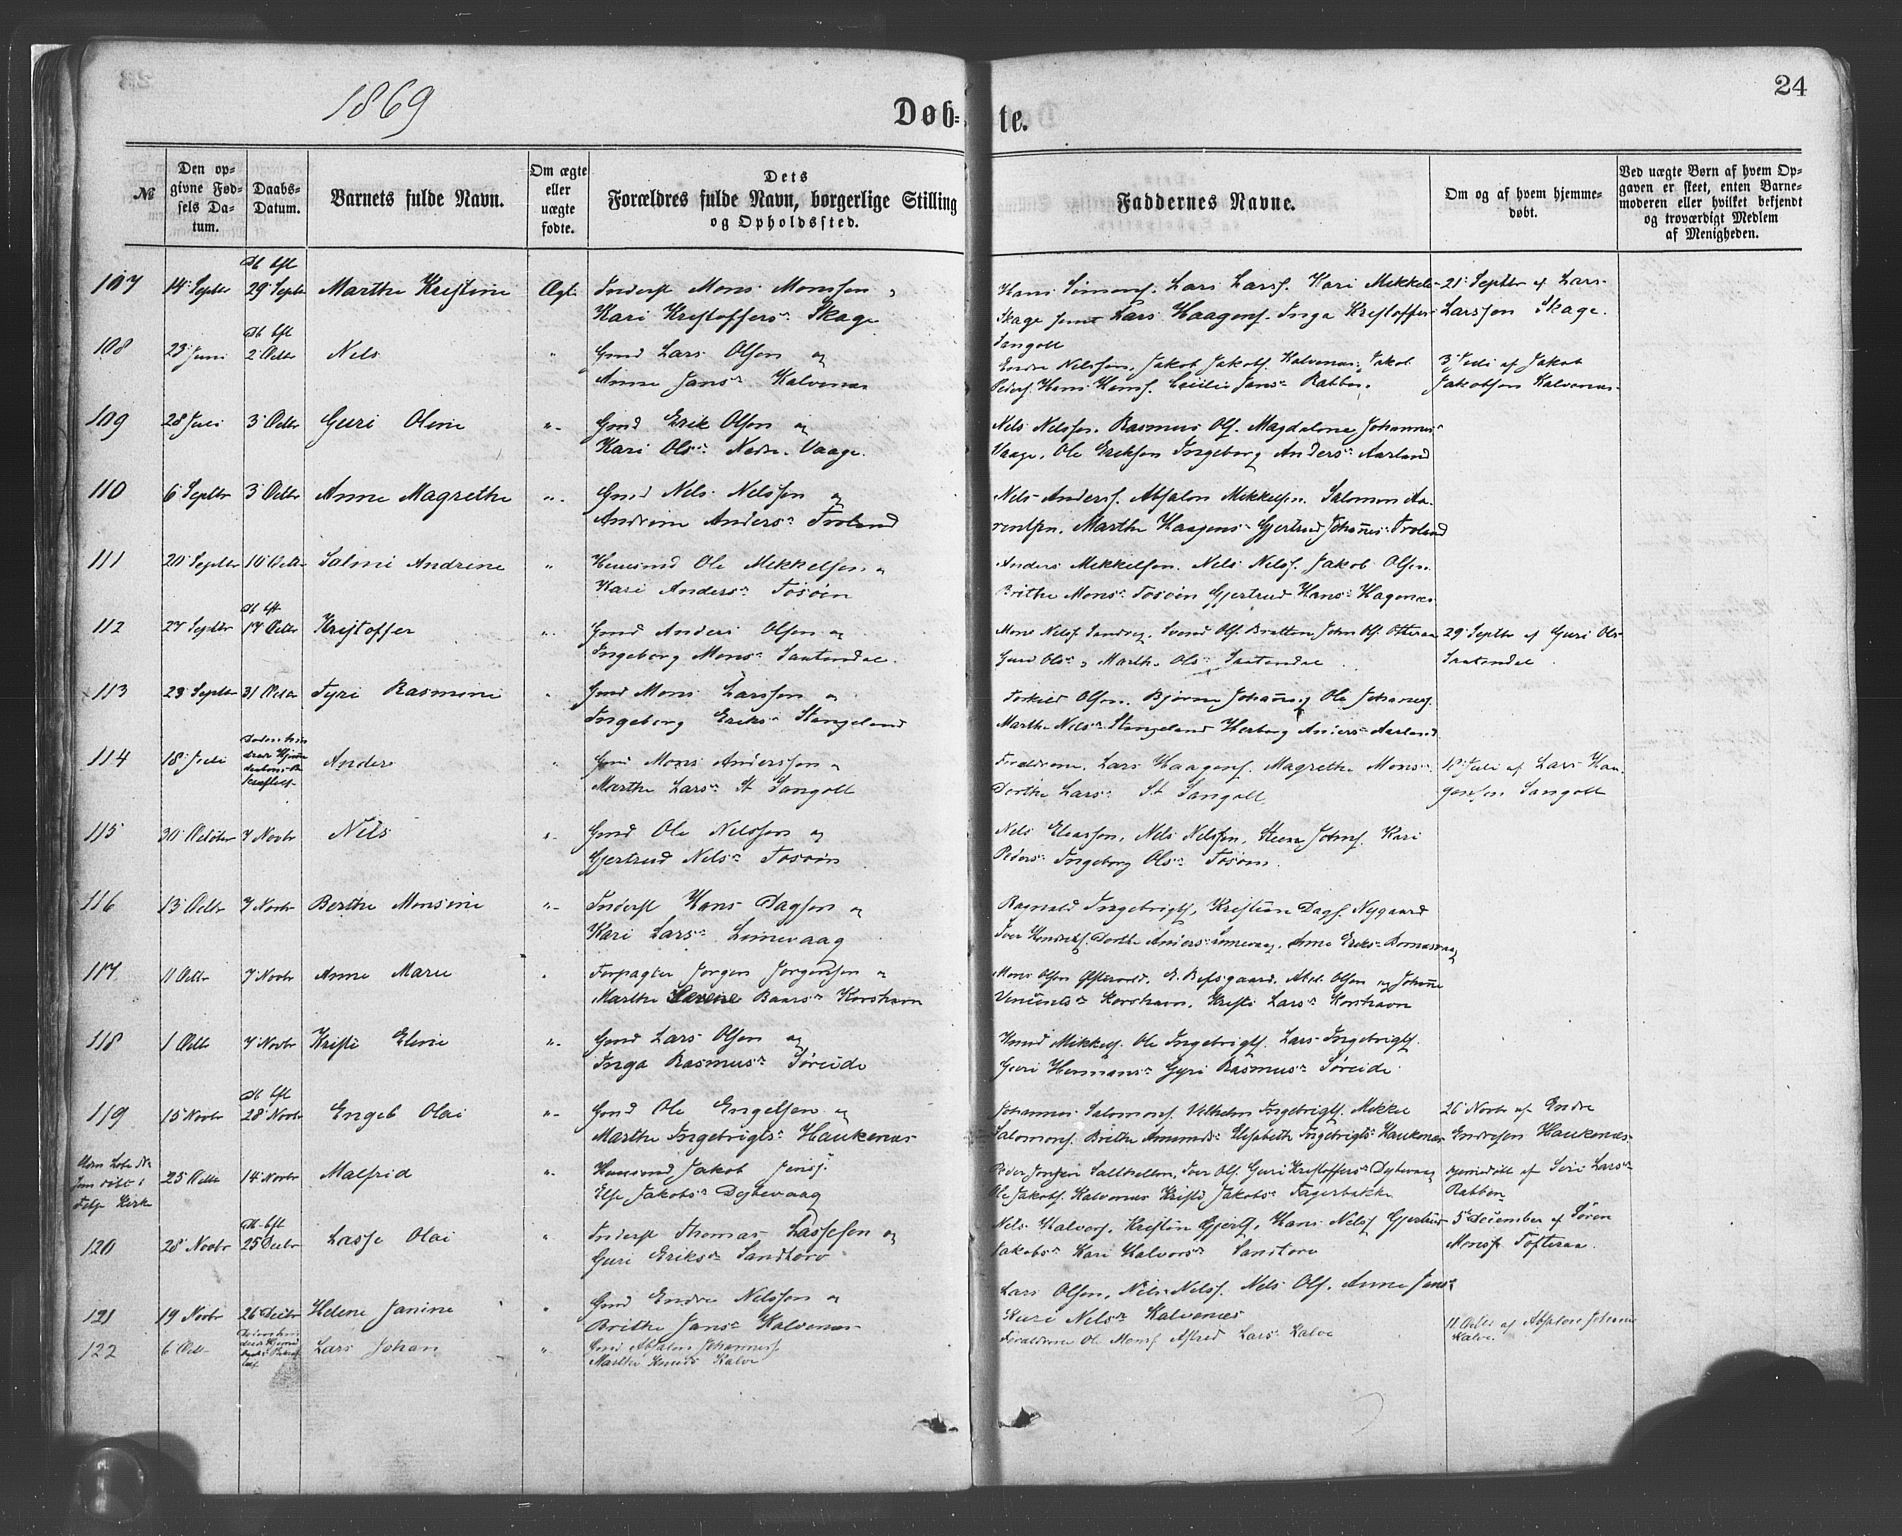 24
1869
Døb- te.
№
Den op-
givne Fød-
sels Da-
tum.
Daabs-
Datum.
Barnets fulde Navn.
Om ægte
eller
uægte
fødte.
Dets
Forældres fulde Navn, borgerlige Stilling
og Opholdssted.
Faddernes Navne.
Om og af hvem hjemme-
døbt.
Ved uægte Børn af hvem Op-
gaven er skeet, enten Barne-
moderen eller hvilket bekjendt
og troværdigt Medlem
af Menigheden.
107 14 Septbr 29 Septbr Marthe Kristine Ægte Inderst Mons Monssen
Kari Kristoffersr Skage
Hans Simons. Lars Larss. Kari Mikkels-
Skage samt Lars Haagens. Inga Kristoffers
Sangolt
21 Septbr af Lars
Larssen Skage.
108 23 Juni 2 Octbr Nels " Gmd Lars Olsen og
Anne Jansr Kalvenæs
Endre Nelssen, Jakob Jakobs. Kalvenæs, Jakob
Peders. Hans Hanss. Cecilie Jansr Rabben.
3 Juli af Jakob
Jakobsen Kalvenæs
109 28 Juli 3 Octbr Guri Oline " Gmd Erik Olsen og
Kari Olsr Nedre Vaage.
Nels Nelssen. Rasmus Ols. Magdalene Johannes
Vaage. Ole Eriksen Ingeborg Andersr Aarland
110 6 Septbr 3 Octbr Anne Magrethe " Gmd Nels Nelssen og
Andrine Andersr Troland
Nels Anderss. Absalon Mikkelsen. Salomon Aa-
rentsen. Marthe Haagensr Gjertrud Johannesr Troland
111 20 Septbr 10 Octbr Salmi Andrine " Huusmd Ole Mikkelsen og
Kari Andersr Tøsøen
Anders Mikkelsen. Nels Nelss. Jakob Olsen.
Brithe Monsr Tøsøen Gjertrud Hansr Hagenæs
112 27 Septbr 17 Octbr Kristoffer " Gmd Anders Olsen og
Ingeborg Monsr Saatendal.
Mons Nelss Sandvig. Svend Ols. Bratten John Ols. Otteraa
Guri Olsr, Marth. Olsr Saatendal
29 Septbr af Guri Olsr
Saatendal
113 23 Septbr 31 Octbr Tyri Rasmine " Gmd Mons Larssen og
Ingeborg Eriksr Stangeland
Torkild Olsen. Bjørne Johannes Ole Johannes.
Marthe Nelsr Stangeland Herborg Andersr Aarland.
114 18 Juli Anders " Gmd Mons Anderssen og
Marthe Larsr St Sangolt
Forældrene. Lars Haagens. Magrethe Monsr
Dorthe Larsr St Sangolt
18 Juli af Lars Haa-
gensen Sangolt
115 30 October 7 Novbr Nils " Gmd Ole Nelssen og
Gjertrud Nelsr Tøsøen
Nels Eliassen, Nels Nelssen, Steen Johns. Kari
Pedersr Ingeborg Olsr Tøsøen.
116 13 Octbr 7 Novbr Berthe Monsine " Inderst Hans Dagsen og
Kari Larsr Limevaag
Ragnald Ingebrigts, Kristian Dags. Nygaard
Dorthe Andersr Limevaag, Anne Eriksr
117 11 Octbr 7 Novbr Anne Marie " Forpagter Jørgen Jørgensen og
Marthe Baarsr Korshavn
Mons Olsen
Korshavn, Kristi Larsr Korshavn
118 1 Octbr 7 Novbr Kristi Eline " Gmd Lars Olsen og
Inga Rasmusr Søreide
Knud Mikkels. Ole Ingebrigts. Lars Ingebrigts.
Guri Hermansr Gyri Rasmusr Søreide.
119 15 Novbr 28 Novbr Engel Olai " Gmd Ole Engelsen og
Marthe Ingebrigtsr Haukenæs
Johannes Salomons. Vilhelm Ingebrigts. Mikkel
Salomons. Brithe Amundsr Elisabeth Ingebrigtsr Haukenæs
26 Novbr af Endre
Endresen Haukenæs.
25 Octbr 14 Novbr Malfrid " Huusmd Jakob Jens.
Else Jakobsr Dybevaag
Peder Jørgen Guri Kristoffersr Dybevaag
Ole Jakobs. Kalvenæs Kristi Jakobsr Fagerbakke
hjemmedøbt af Siri Larsr
Rabben
120 28 Novbr 25 Decbr Lasse Olai " Inderst Thomas Lassesen og
Guri Eriksr Sandtorv
Nels Halvors. Kristen Hans Nelss Gjertrud
Jakobsr Kari Halvorsr Sandtorv
5 December af Søren
Monss Tofteraa.
121 19 Novbr 26 Decbr Helene Janine " Gmd Endre Nelssen og
Brithe Jansr Kalvenæs
Lars Olsen, Nels Nelss. Nels Ols. Anne Jansr
Kari Nelsr Kalvenæs
122 6 Octbr Lars Johan " Gmd Absalon Johanness.
Marthe Knudsr Kalve
Forældrene Ole Monss Larsr Kalve
11 Octbr af Absalon Johannes
Kalve.